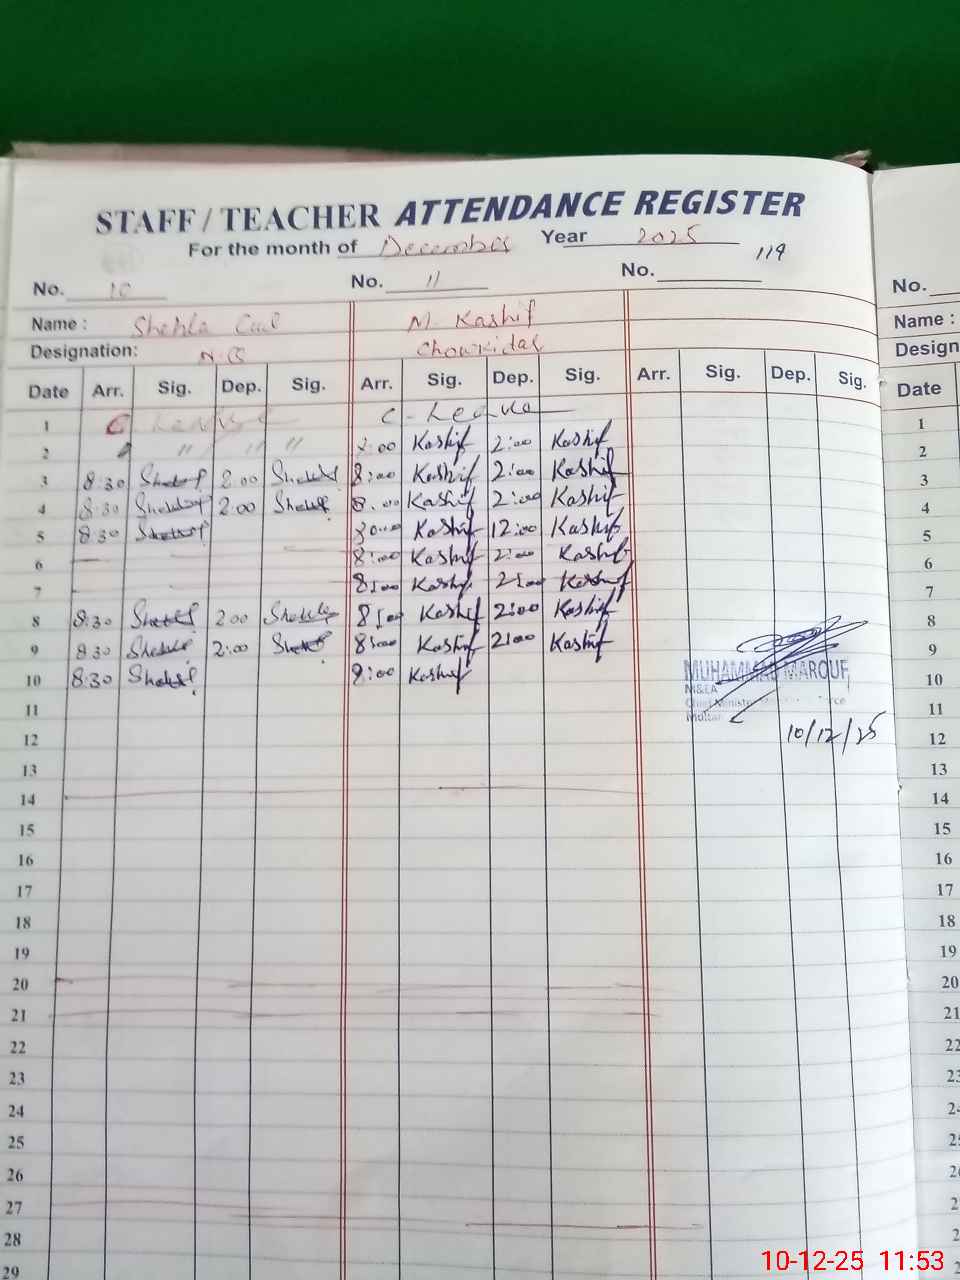 STAFF / TEACHER ATTENDANCE REGISTER
For the month of December Year 2025
119
No. 10 No. 11 No. No.
Name : Shehla M. Kashif Name :
Designation: N.Q Chowkidar Design
Date Arr. Sig. Dep. Sig. Arr. Sig. Dep. Sig. Arr. Sig. Dep. Sig. Date
1 C Leave C. Leave 1
2 " " " 8:00 Kashif 2:00 Kashif 2
3 8:30 2:00 8:00 Kashif 2:00 Kashif 3
4 8:30 2:00 8:00 Kashif 2:00 Kashif 4
5 8:30 8:00 Kashif 12:00 Kashif 5
6 8:00 Kashif 2:00 Kashif 6
7 8:00 Kashif 2:00 Kashif 7
8 8:30 2:00 8:00 Kashif 2:00 Kashif 8
9 8:30 2:00 8:00 Kashif 2:00 Kashif 9
10 8:30 8:00 Kashif MUHAMMAD MAROUF 10
M&EA
11 Chief Minister 11
Multan
12 10/12/25 12
13 13
14 14
15 15
16 16
17 17
18 18
19 19
20 20
21 21
22 22
23 23
24 24
25 25
26 26
27
28
29
10-12-25 11:53